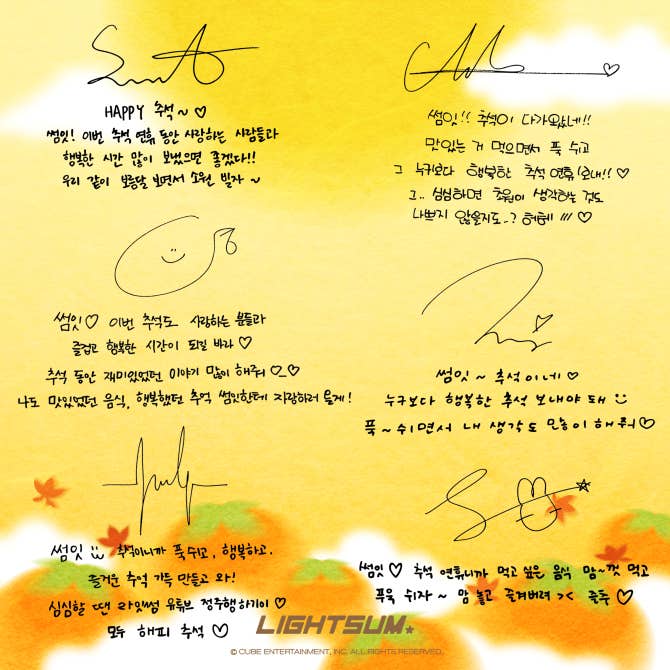 HAPPY 추석 ~ ♡
썸잇! 이번 추석 연휴 동안 사랑하는 사람들과
행복한 시간 많이 보냈으면 좋겠다!!
우리 같이 보름달 보면서 소원 빌자 ~
썸잇!! 추석이 다가왔네!!
맛있는 거 먹으면서 푹 쉬고
그 누구보다 행복한 추석 연휴 보내!! ♡
그.. 심심하면 초원이 생각하는 것도
나쁘지 않을지도..? 허헤 /// ♡
썸잇♡ 이번 추석도 사랑하는 분들과
즐겁고 행복한 시간이 되길 바라♡
추석 동안 재미있었던 이야기 많이 해줘♡_♡
나도 맛있었던 음식, 행복했던 추억 썸잇한테 자랑하러 올게!
썸잇 ~ 추석이네 ♡
누구보다 행복한 추석 보내야 돼 :)
푹 ~ 쉬면서 내 생각도 많이 해줘♡
썸잇 추석이니까 푹 쉬고, 행복하고.
즐거운 추억 가득 만들고 와!
심심할 땐 라잇썸 유튜브 정주행하기이♡
모두 해피 추석 ♡
썸잇 ♡ 추석 연휴니까 먹고 싶은 음식 맘~껏 먹고
푸욱 쉬자~ 맘 놓고 즐겨버려 >< 쿄쿄 ♡
LIGHTSUM★
© CUBE ENTERTAINMENT, INC. ALL RIGHTS RESERVED.